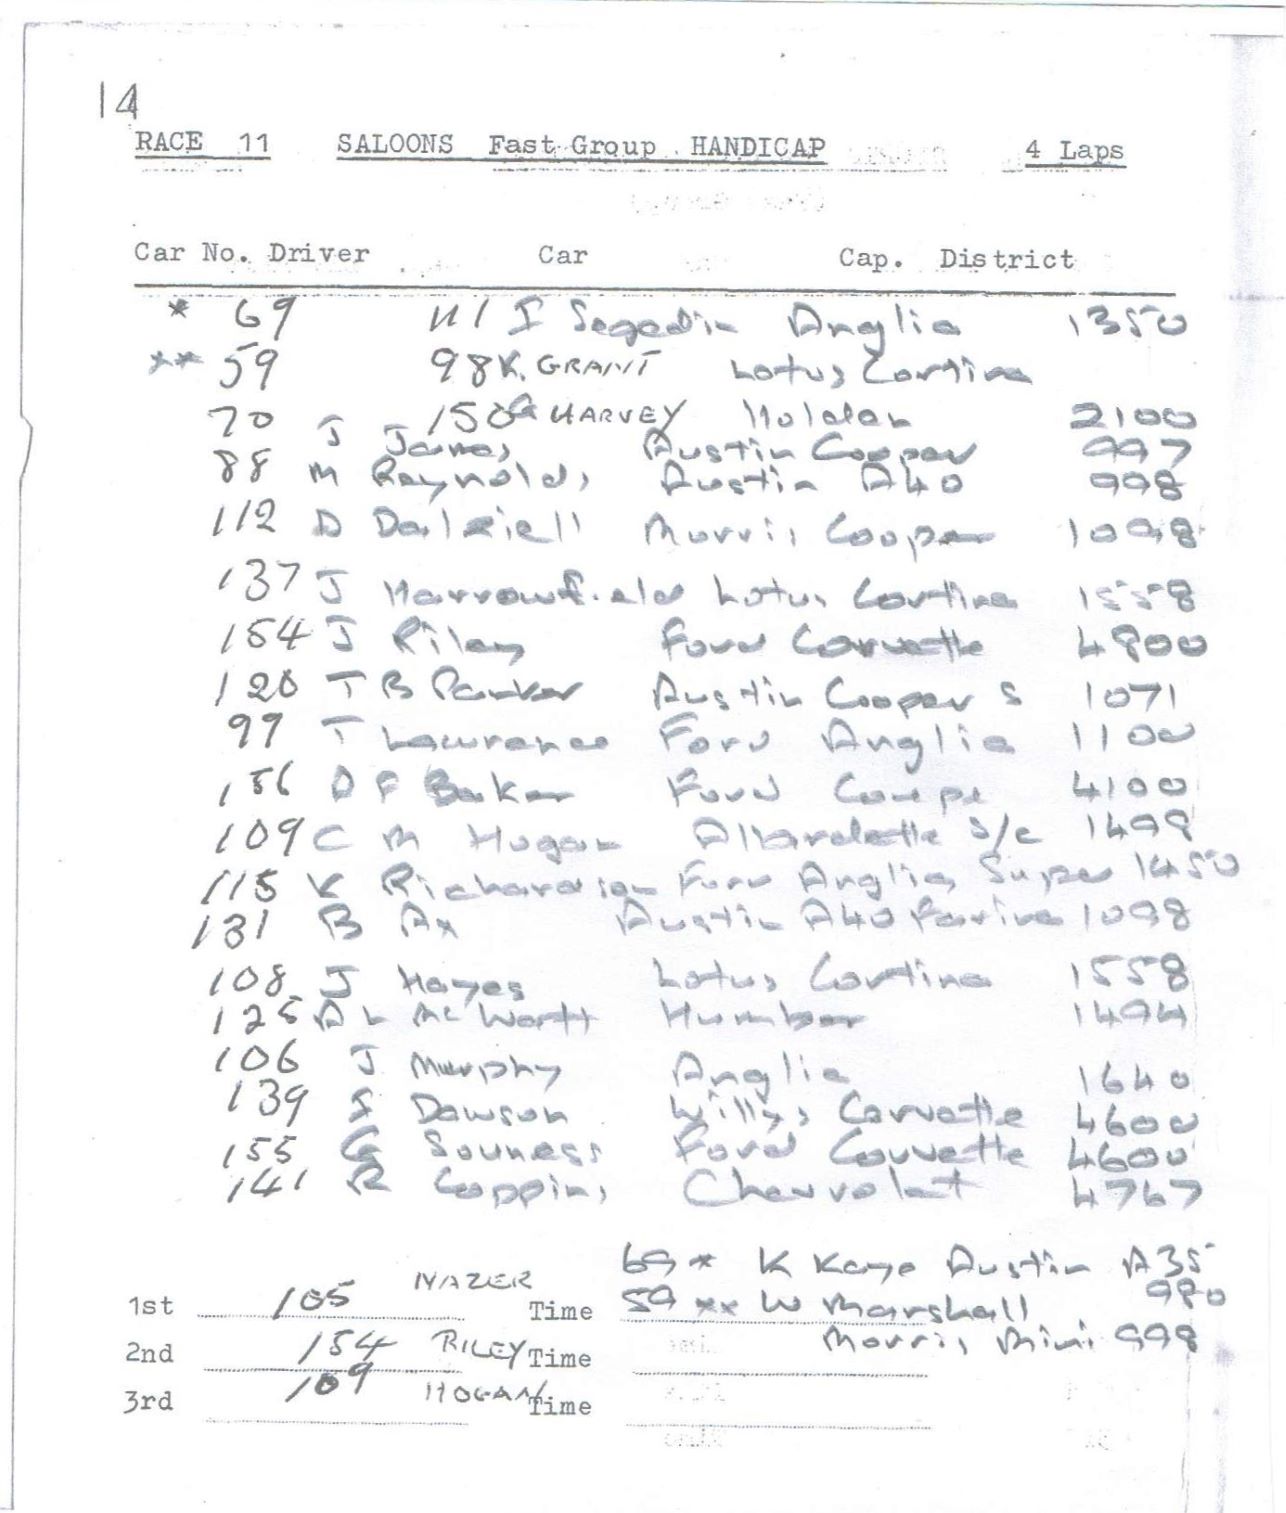 14
RACE 11 SALOONS Fast Group HANDICAP 4 Laps
Car No. Driver Car Cap. District
* 69 111 I Segedin Anglia 1350
** 59 98 K. GRANT Lotus Cortina
70 150 G HARVEY Holden 2100
J James Austin Cooper 997
88 M Reynolds Austin A40 998
112 D Dalziell Morris Cooper 1098
137 J Harrowfield Lotus Cortina 1558
154 J Riley Ford Corvette 4800
120 T B Parker Austin Cooper S 1071
99 T Lawrence Ford Anglia 1100
156 D F Baker Ford Coupe 4100
109 C M Hogan Allardette S/c 1498
115 K Richardson Ford Anglia Super 1450
131 B Ax Austin A40 Farina 1098
108 J Hayes Lotus Cortina 1558
125 A L McWartt Humber 1494
106 J Murphy Anglia 1640
139 S Dawson Willys Corvette 4600
155 G Souness Ford Corvette 4600
141 R Coppins Chevrolet 4767
69 * K Kaye Austin A35
980
1st 105 NAZER Time 59 ** W Marshall
Morris Mini 998
2nd 154 RILEY Time
3rd 109 HOGAN Time